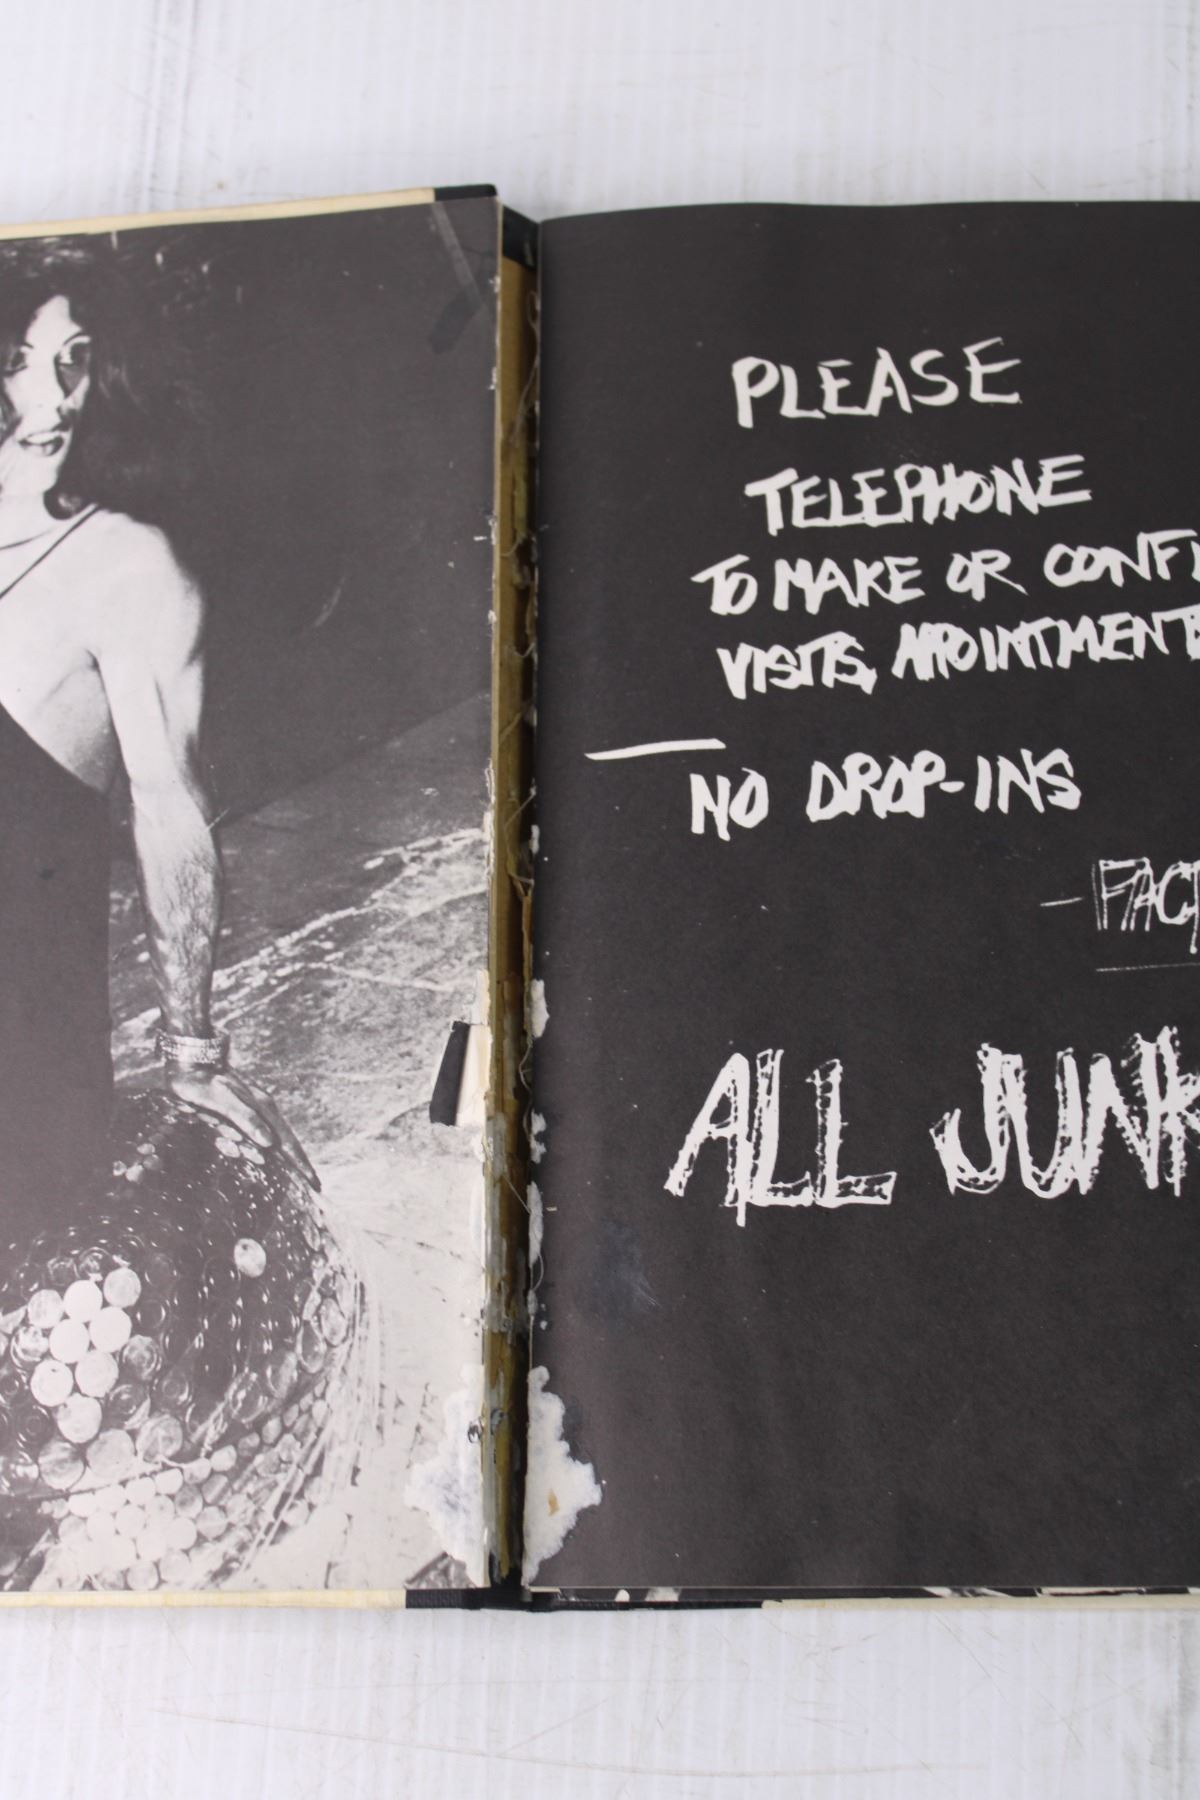 PLEASE
TELEPHONE
TO MAKE OR CONFI
VISITS, APPOINTMENTS
NO DROP-INS
-FACT
ALL JUNK